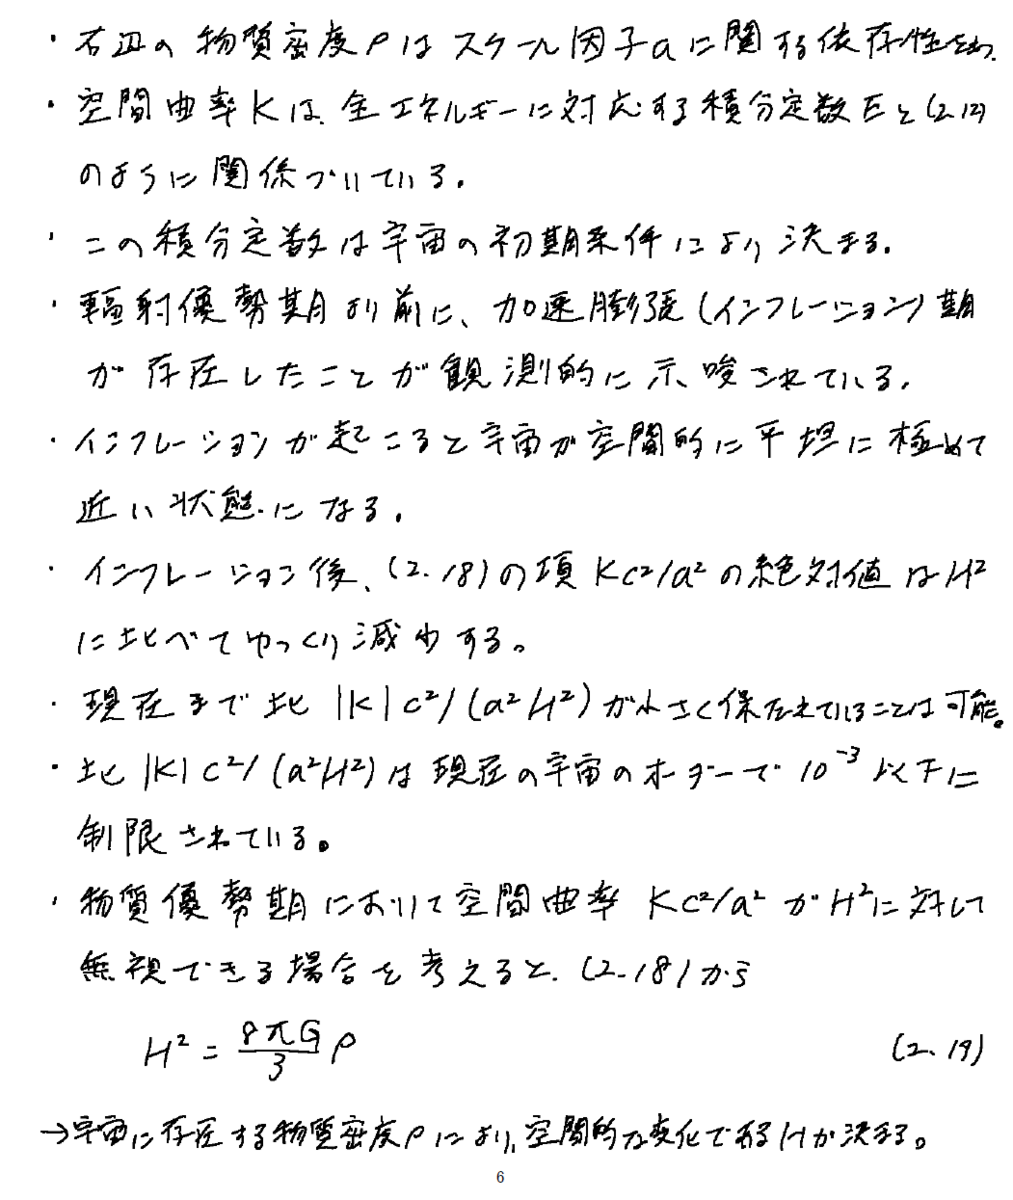 ・右辺の物質密度ρはスケール因子aに関する依存性をわ
・空間曲率Kは、全エネルギーに対応する積分定数Eと(2.12)
のように関係づいている.
・この積分定数は宇宙の初期条件により決まる.
・輻射優勢期より前に、加速膨張(インフレーション)期
が存在したことが観測的に示唆されている.
・インフレーションが起こると宇宙が空間的に平坦に極めて
近い状態になる.
・インフレーション後、(2.18)の項Kc²/a²の絶対値はH²
に比べてゆっくり減少する。
・現在まで比|K|c²/(a²H²)が小さく保たれていることは可能。
・比|K|c²/(a²H²)は現在の宇宙のオーダーで10⁻³以下に
制限されている。
・物質優勢期において空間曲率Kc²/a²がH²に対して
無視できる場合を考えると、(2.18)から
H² = 8πG/3 ρ (2.19)
→宇宙に存在する物質密度ρにより、空間的な変化であるHが決まる。
6